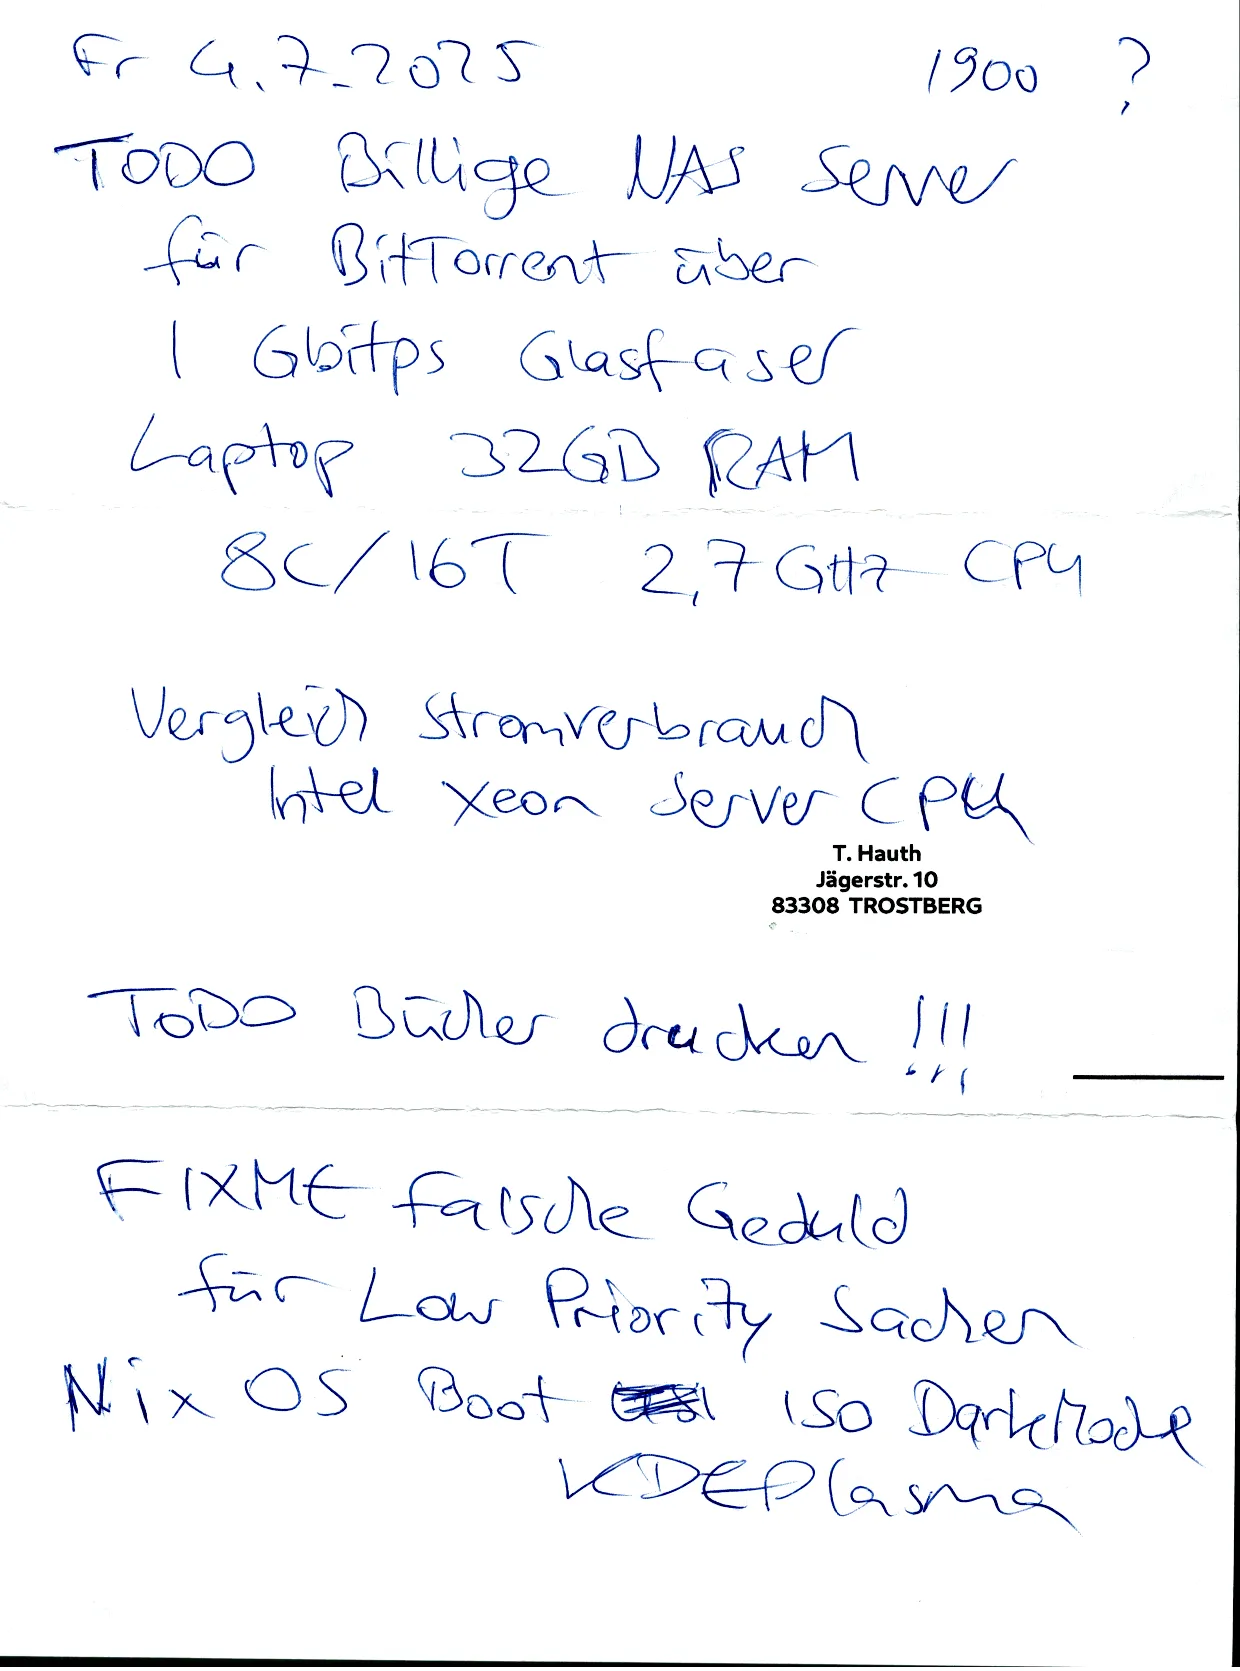 Fr 4.7.2025 1900 ?
TODO Billige NAS Server
für BitTorrent über
1 Gbitps Glasfaser
Laptop 32GB RAM
8C/16T 2,7GHz CPU
Vergleich Stromverbrauch
Intel Xeon Server CPU
T. Hauth
Jägerstr. 10
83308 TROSTBERG
TODO Bücher drucken !!!
FIXME Falsche Geduld
für Low Priority Sachen
Nix OS Boot ISO DarkMode
KDE Plasma